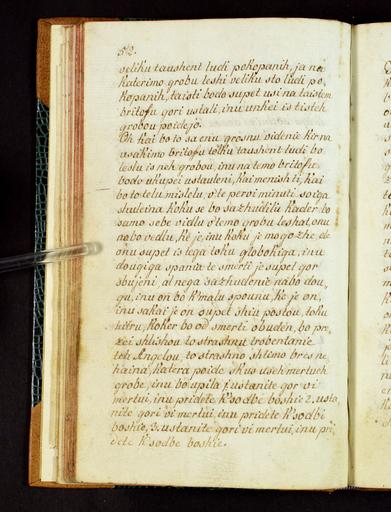 52.
veliku taushent ludi pokopanih, ja na
katerimo grobu leshi veliku sto ludi po-
kopanih, taisti bodo supet usi na taistem
britofu gori ustali, inu unkei is tisteh
grobou poidejo.
Oh kai bo to sa enu grosnu videnie kir na
usakimo britofu tolku taushent ludi bo
leslu is neh grobou, inu na temo britofu
bodo ukupei ustauleni, kai menish ti, kai
bo to telu mislelu, v'te pervi minuti, so iga
shuleina koku se bo sazhudilu kader bo
samo sebe vidlu v'temo grobu leshat onu
nabo vedlu, ke je, inu koku je mogozhe, de
onu supet is tega toku globokiga, inu
dougiga spania te smerti je supet gor
sbujeni al nega sazhudenie nabo dou-
gu, inu on bo k'malu spounu, ke je on,
inu sakai je on supet shiu postou, toku
hitru, koker bo od smerti obuden, bo pre-
zei shlishou to strashnu trobentanie
teh Angelou, to strashno shtimo bres ne-
haina, katera poide skus useh mertueh
grobe, inu bo upila ſ ustanite gor vi
mertui, inu pridete k'sodbi boshie 2, usta-
nite gori vi mertui, inu pridete k'sodbi
boshie, 3, ustanite gori vi mertui, inu pri-
dete k'sodbe boshie.